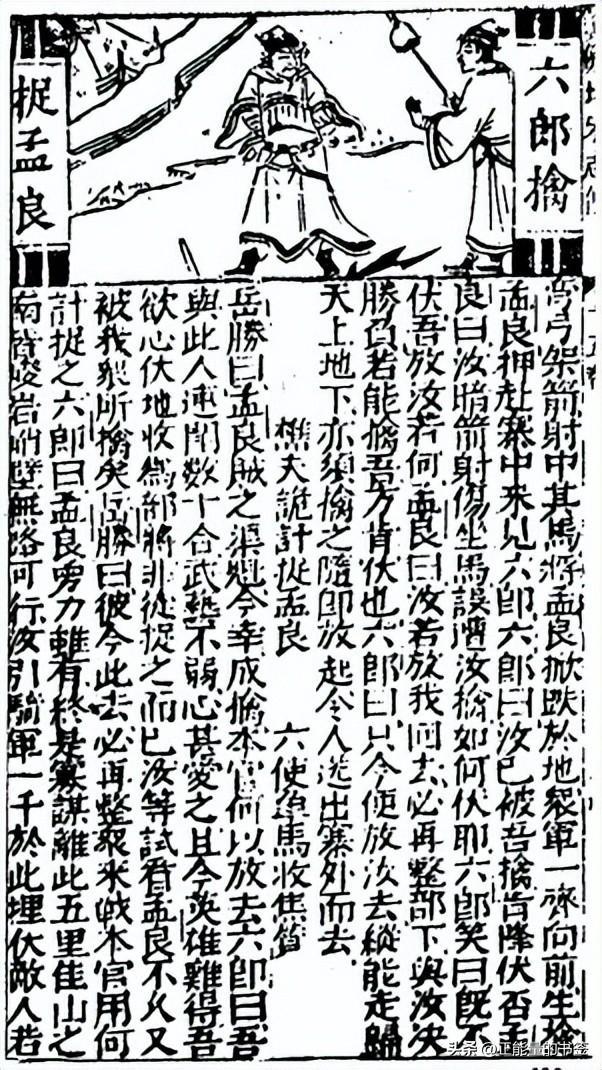 六郎擒
捉孟良
弓架箭射中其馬將孟良掀跌於地衆軍一齊向前生擒
孟良押赴寨中來見六郎六郎曰汝已被吾擒肯降伏否孟
良曰汝暗箭射傷坐馬誤遭汝擒如何伏耶六郎笑曰旣不
伏吾放汝若何孟良曰汝若放我回去必再整部下與汝决
勝負若能擒吾方肯伏也六郎曰只今便放汝去縱能走歸
天上地下亦須擒之隨即放起令人送出寨外而去
樵夫詭計捉孟良 六使單馬收焦贊
岳勝曰孟良賊之渠魁今幸成擒本官何以放去六郎曰吾
與此人連鬪數十合武藝不弱心甚愛之且今英雄難得吾
欲心伏他收爲部將非徒捉之而已汝等試看孟良不久又
被我所擒矣岳勝曰彼今此去必再整衆來戰本官用何
計捉之六郎曰孟良勇力雖有終是寡謀離此五里佳山之
南皆峻岩峭壁無路可行汝引騎軍一千於此埋伏敵人若
头条 @正能量的书签